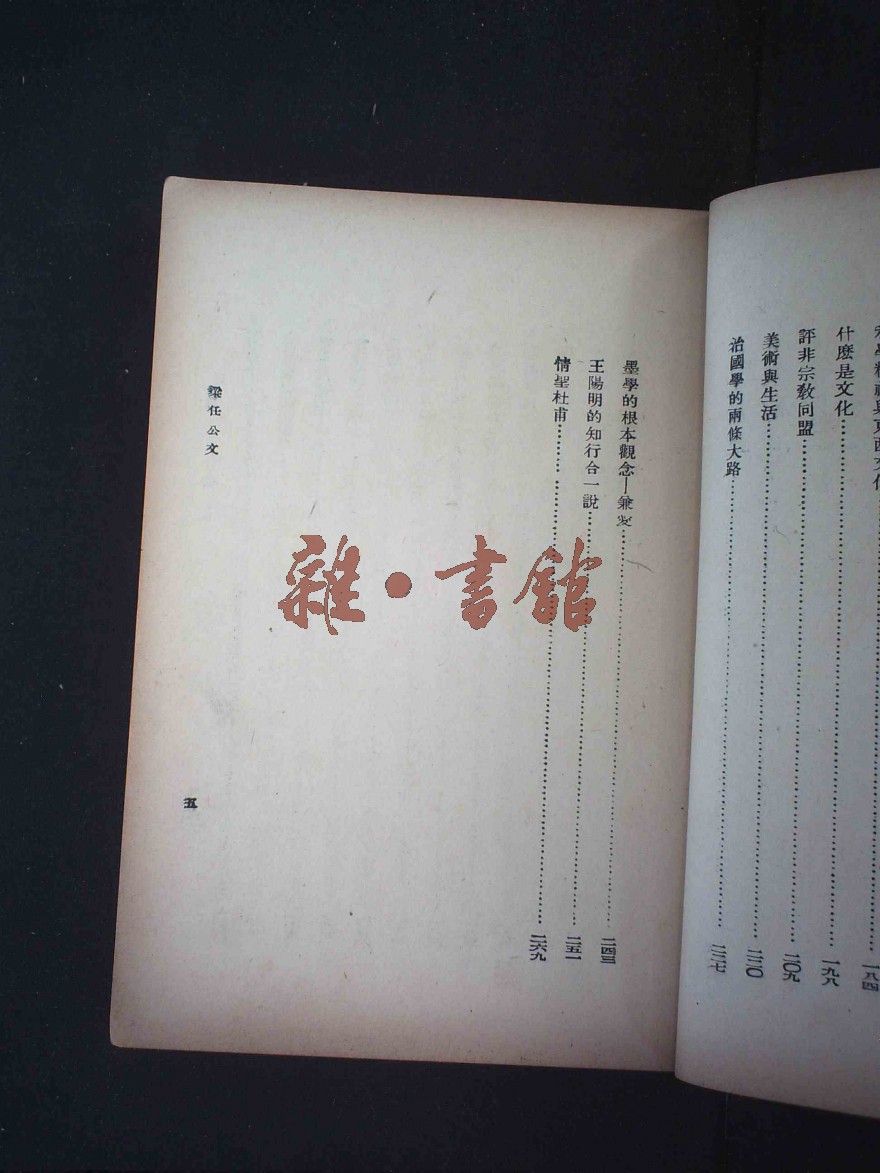 學精神與東西文化 一八四
什麽是文化 一九八
評非宗教同盟 二〇九
美術與生活 二二〇
治國學的兩條大路 二二七
墨學的根本觀念—兼愛 二四三
王陽明的知行合一說 二五一
情聖杜甫 二六九
梁任公文
五
雜·書館